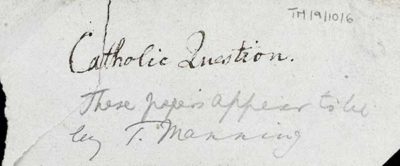 TM/9/10/6
Catholic Question.
These papers appear to be
by T. Manning